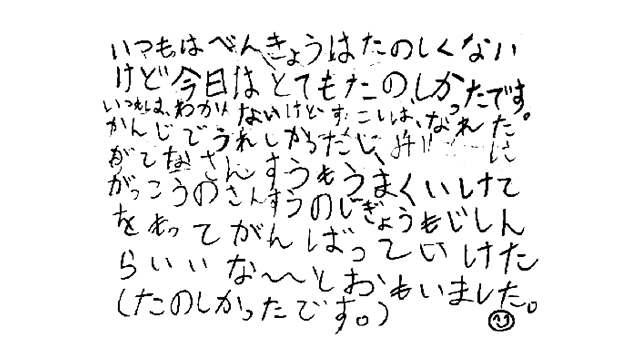 いつもはべんきょうはたのしくない
けど今日はとてもたのしかったです。
いつもは、わからないけど すこしは、なれた
かんじでうれしかっただし、
がてなさんすうもうまくいけて
がっこうのさんすうのじぎょうもじしん
をもってがんばっていけた
らいいな〜〜とおもいました。
(たのしかったです。)